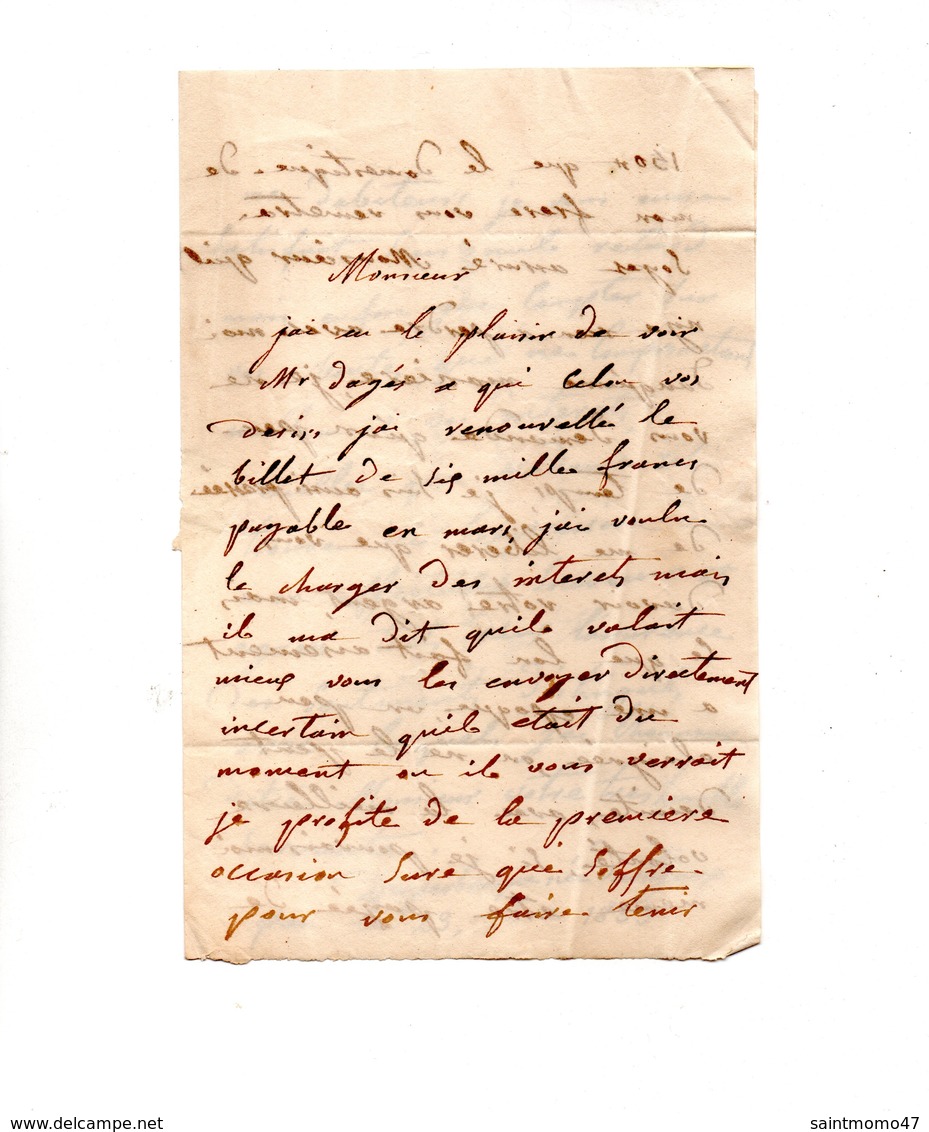 Monsieur
jai eu le plaisir de voir
Mr dagés a qui Celon vos
desirs jai renouvellé le
billet de six mille francs
payable en mars, jai voulu
le charger des interets mais
il ma dit quil valait
mieux vous les envoyer directement
incertain quil etait du
moment ou il vous verrait
je profite de la premiere
occasion Sure qui Soffre
pour vous faire tenir
delcampe.net
saintmomo47